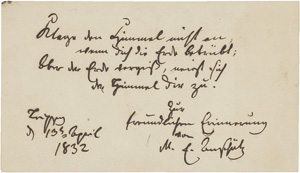 Klage den Himmel nicht an,
wenn dich die Erde betrübt;
Über der Erde vergiß, neigt sich
der Himmel dir zu.
Zur
freundlichen Erinnerung
von
M. E.
d 13t April
1832